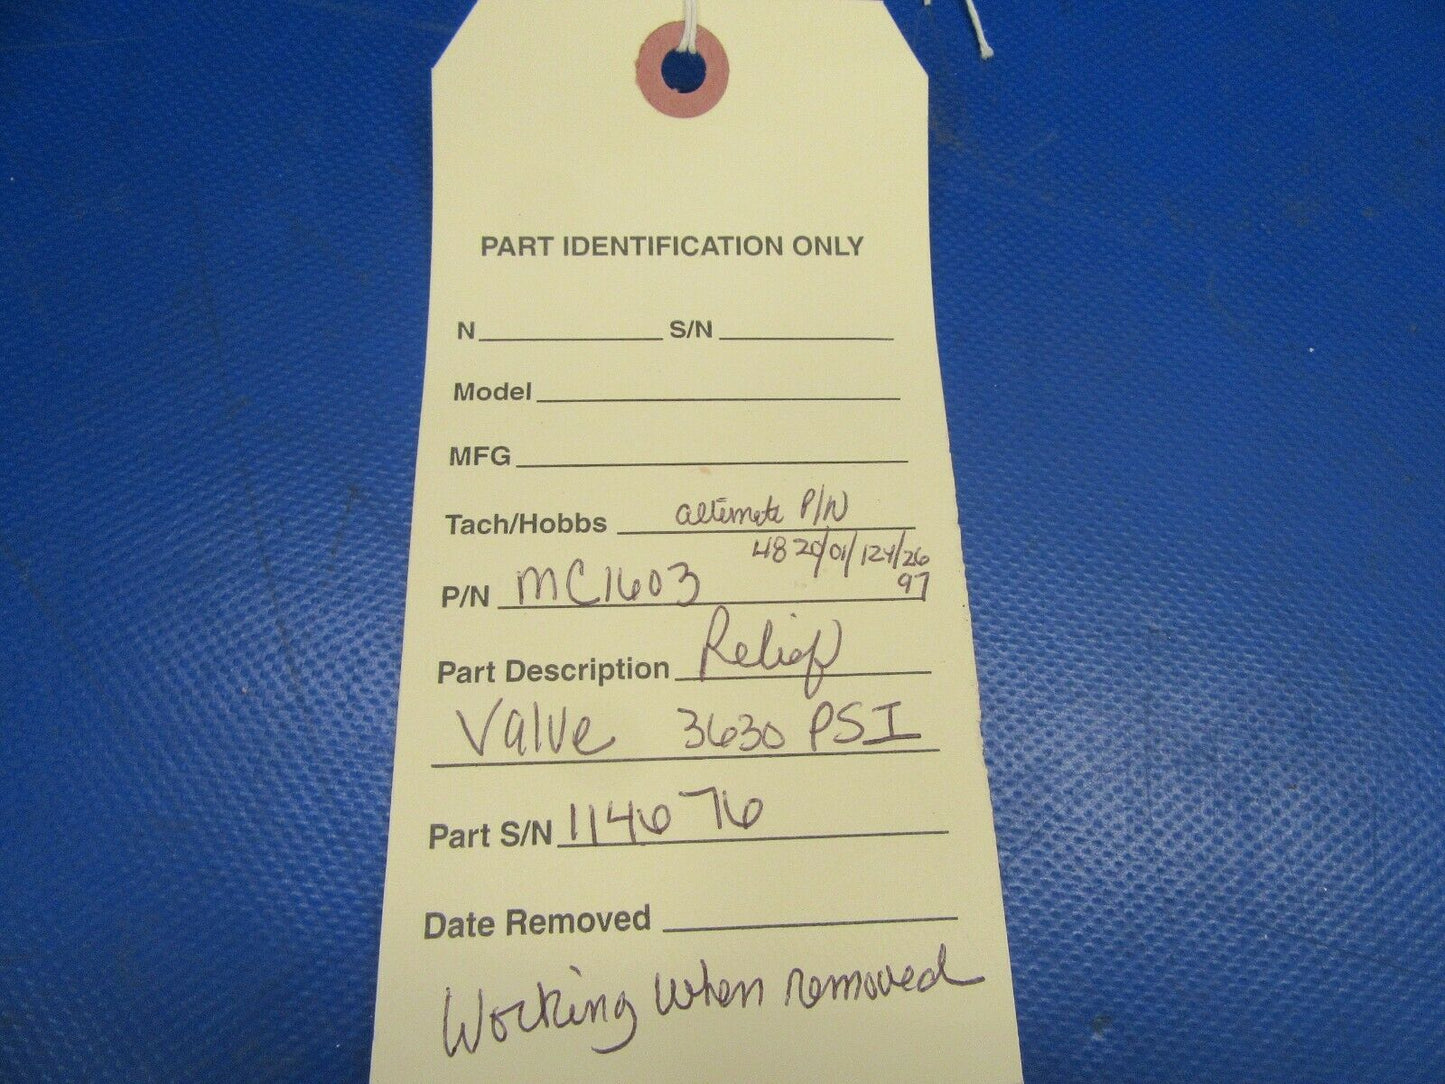 PART IDENTIFICATION ONLY
N S/N
Model
MFG
Tach/Hobbs alternate P/N
4820/01/124/26
97
P/N MC1603
Part Description Relief
Valve 3630 PSI
Part S/N 114676
Date Removed
Working when removed